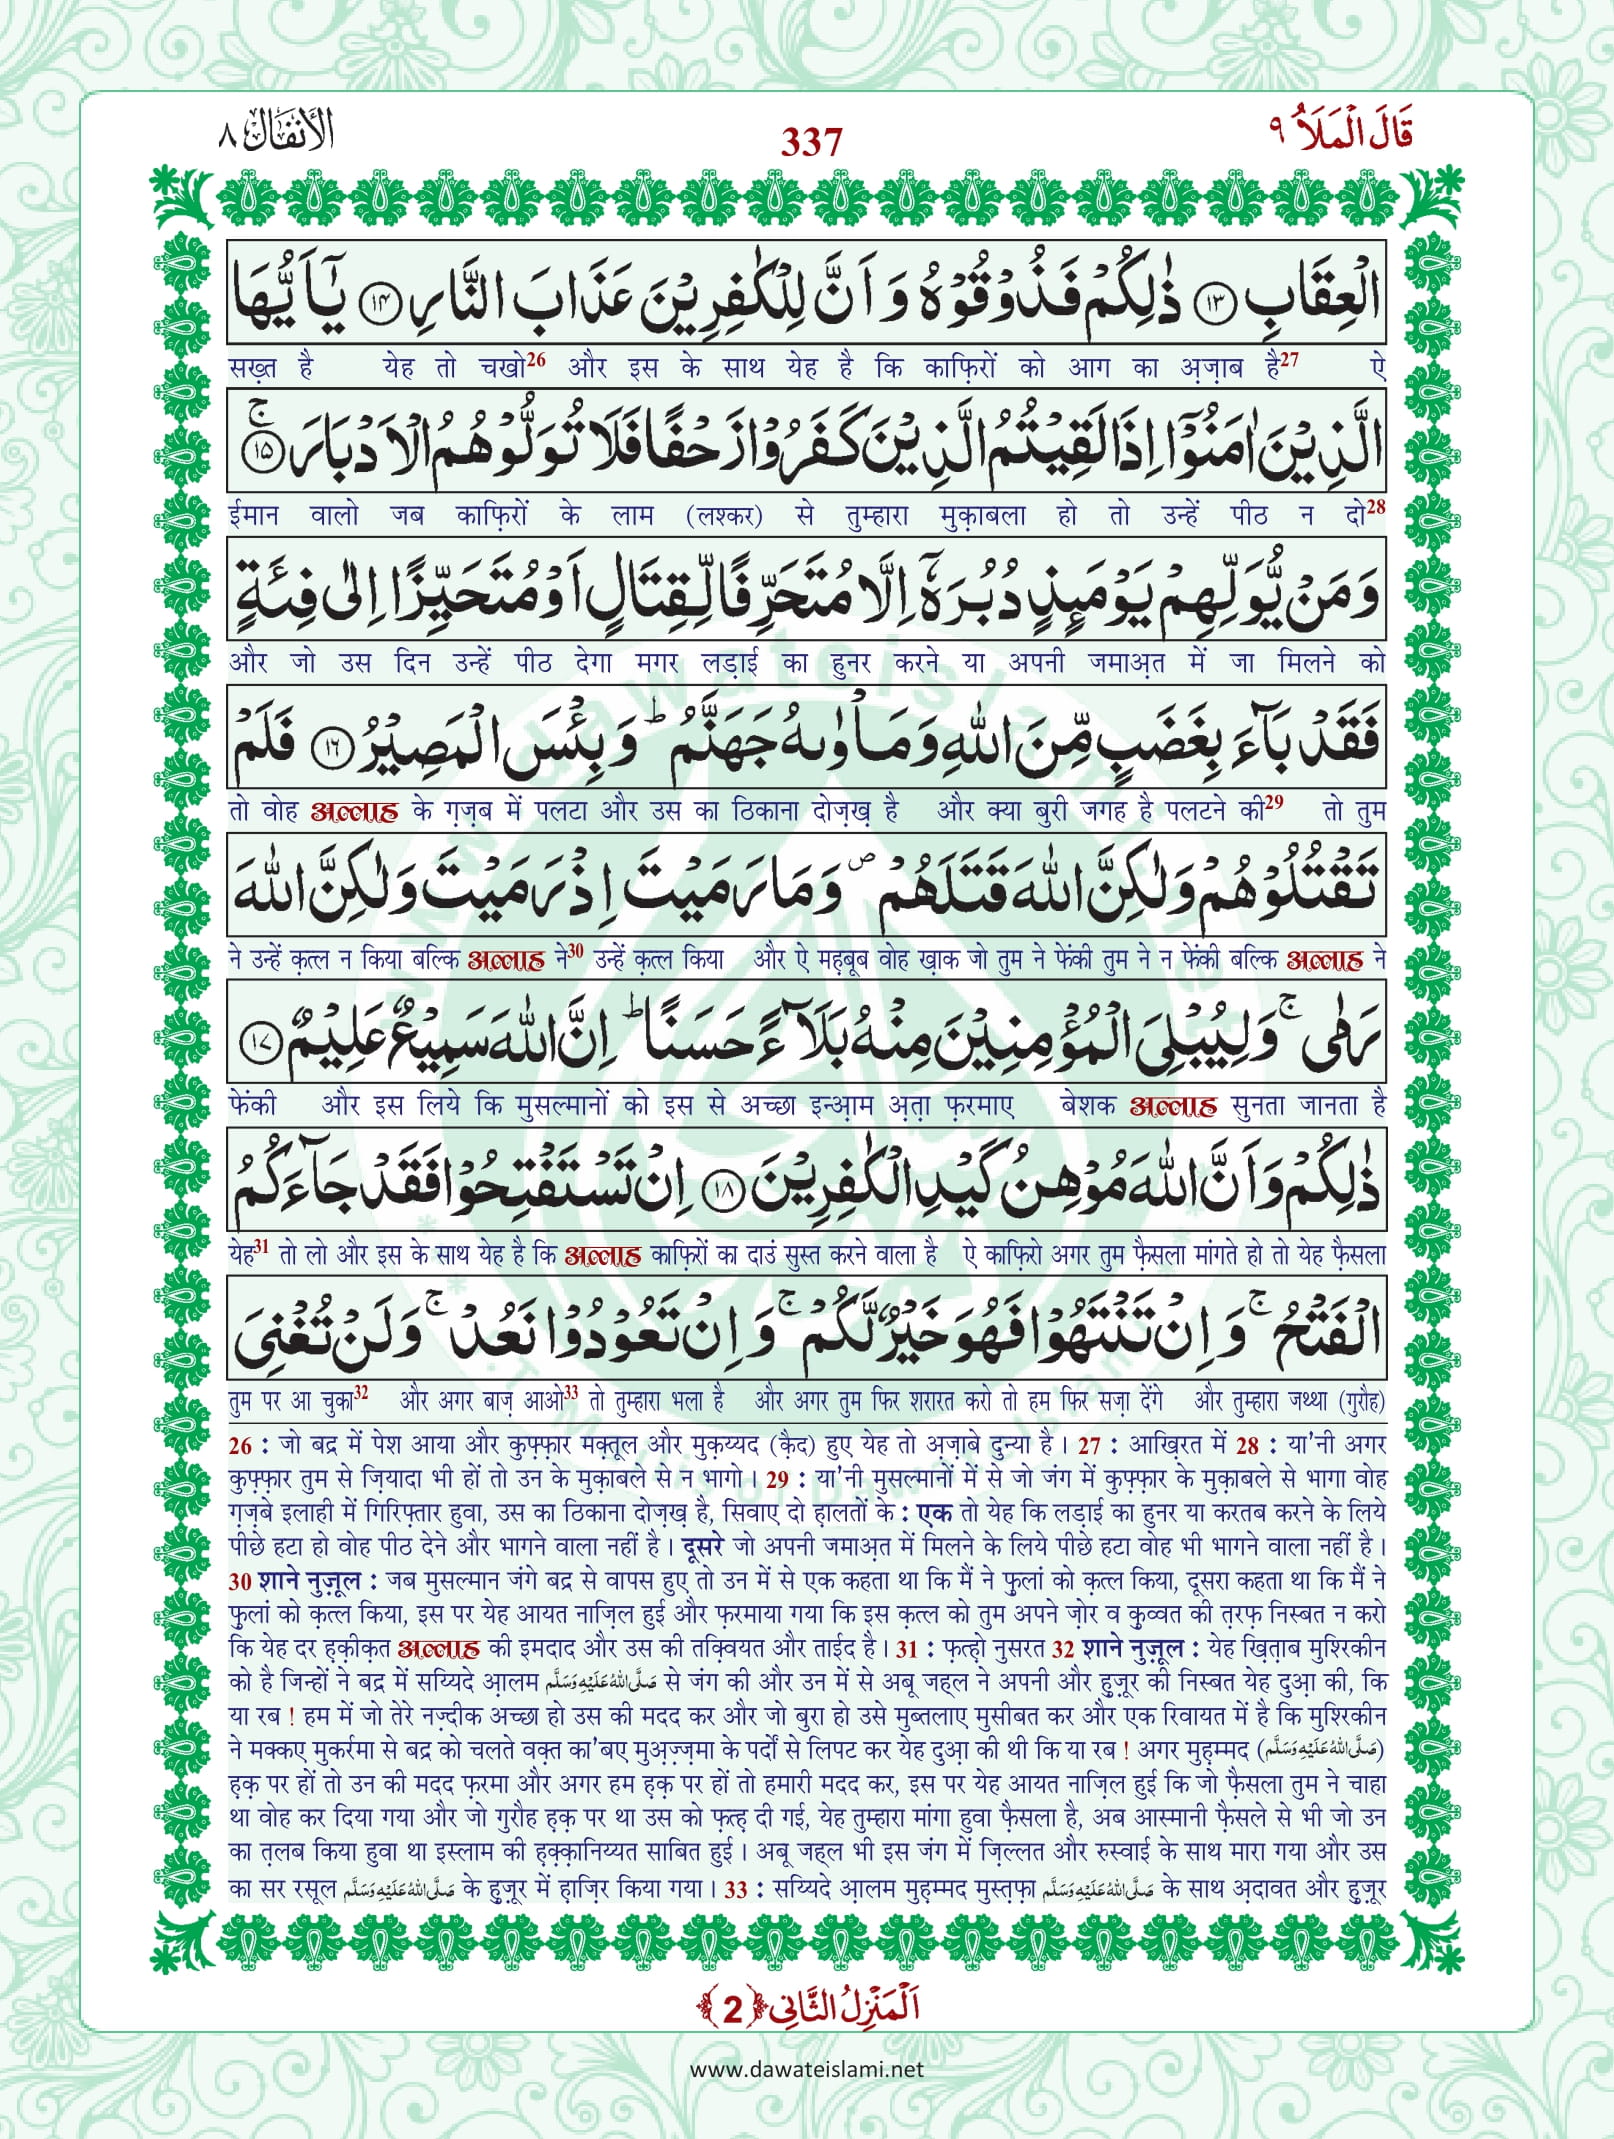 قَالَ الْمَلَاُ ٩ 337 الأنفال ٨
الْعِقَابِ ﴿١٣﴾ ذٰلِكُمْ فَذُوْقُوْهُ وَ اَنَّ لِلْكٰفِرِیْنَ عَذَابَ النَّارِ ﴿١٤﴾ یٰۤاَیُّهَا
सख़्त है येह तो चखो26 और इस के साथ येह है कि काफ़िरों को आग का अ़ज़ाब है27 ऐ
الَّذِیْنَ اٰمَنُوْۤا اِذَا لَقِیْتُمُ الَّذِیْنَ كَفَرُوْا زَحْفًا فَلَا تُوَلُّوْهُمُ الْاَدْبَارَ ۚ﴿١٥﴾
ईमान वालो जब काफ़िरों के लाम (लश्कर) से तुम्हारा मुक़ाबला हो तो उन्हें पीठ न दो28
وَ مَنْ یُّوَلِّهِمْ یَوْمَىٕذٍ دُبُرَهٗۤ اِلَّا مُتَحَرِّفًا لِّقِتَالٍ اَوْ مُتَحَیِّزًا اِلٰى فِئَةٍ
और जो उस दिन उन्हें पीठ देगा मगर लड़ाई का हुनर करने या अपनी जमाअ़त में जा मिलने को
فَقَدْ بَآءَ بِغَضَبٍ مِّنَ اللّٰهِ وَ مَاْوٰىهُ جَهَنَّمُ ؕ وَ بِئْسَ الْمَصِیْرُ ﴿١٦﴾ فَلَمْ
तो वोह अल्लाह के ग़ज़ब में पलटा और उस का ठिकाना दोज़ख़ है और क्या बुरी जगह है पलटने की29 तो तुम
تَقْتُلُوْهُمْ وَ لٰكِنَّ اللّٰهَ قَتَلَهُمْ ۪ وَ مَا رَمَیْتَ اِذْ رَمَیْتَ وَ لٰكِنَّ اللّٰهَ
ने उन्हें क़त्ल न किया बल्कि अल्लाह ने30 उन्हें क़त्ल किया और ऐ मह़बूब वोह ख़ाक जो तुम ने फेंकी तुम ने न फेंकी बल्कि अल्लाह ने
رَمٰى ۚ وَ لِیُبْلِیَ الْمُؤْمِنِیْنَ مِنْهُ بَلَآءً حَسَنًا ؕ اِنَّ اللّٰهَ سَمِیْعٌ عَلِیْمٌ ﴿١٧﴾
फेंकी और इस लिये कि मुसल्मानों को इस से अच्छा इन्आ़म अ़त़ा फ़रमाए बेशक अल्लाह सुनता जानता है
ذٰلِكُمْ وَ اَنَّ اللّٰهَ مُوْهِنُ كَیْدِ الْكٰفِرِیْنَ ﴿١٨﴾ اِنْ تَسْتَفْتِحُوْا فَقَدْ جَآءَكُمُ
येह31 तो लो और इस के साथ येह है कि अल्लाह काफ़िरों का दाउं सुस्त करने वाला है ऐ काफ़िरो अगर तुम फ़ैसला मांगते हो तो येह फ़ैसला
الْفَتْحُ ۚ وَ اِنْ تَنْتَهُوْا فَهُوَ خَیْرٌ لَّكُمْ ۚ وَ اِنْ تَعُوْدُوْا نَعُدْ ۚ وَ لَنْ تُغْنِیَ
तुम पर आ चुका32 और अगर बाज़ आओ33 तो तुम्हारा भला है और अगर तुम फिर शरारत करो तो हम फिर सज़ा देंगे और तुम्हारा जथ्था (गुरौह)
26 : जो बद्र में पेश आया और कुफ़्फ़ार मक़्तूल और मुक़य्यद (क़ैद) हुए येह तो अ़ज़ाबे दुन्या है। 27 : आख़िरत में 28 : या'नी अगर
कुफ़्फ़ार तुम से ज़ियादा भी हों तो उन के मुक़ाबले से न भागो। 29 : या'नी मुसल्मानों में से जो जंग में कुफ़्फ़ार के मुक़ाबले से भागा वोह
ग़ज़बे इलाही में गिरिफ़्तार हुवा, उस का ठिकाना दोज़ख़ है, सिवाए दो ह़ालतों के : एक तो येह कि लड़ाई का हुनर या करतब करने के लिये
पीछे हटा हो वोह पीठ देने और भागने वाला नहीं है। दूसरे जो अपनी जमाअ़त में मिलने के लिये पीछे हटा वोह भी भागने वाला नहीं है।
30 शाने नुज़ूल : जब मुसल्मान जंगे बद्र से वापस हुए तो उन में से एक कहता था कि मैं ने फ़ुलां को क़त्ल किया, दूसरा कहता था कि मैं ने
फ़ुलां को क़त्ल किया, इस पर येह आयत नाज़िल हुई और फ़रमाया गया कि इस क़त्ल को तुम अपने ज़ोर व क़ुव्वत की त़रफ़ निस्बत न करो
कि येह दर ह़क़ीक़त अल्लाह की इमदाद और उस की तक़्वियत और ताईद है। 31 : फ़त्ह़ो नुसरत 32 शाने नुज़ूल : येह ख़ित़ाब मुश्रिकीन
को है जिन्हों ने बद्र में सय्यिदे आ़लम صَلَّى اللّٰهُ عَلَيْهِ وَسَلَّم से जंग की और उन में से अबू जह्ल ने अपनी और ह़ुज़ूर की निस्बत येह दुआ़ की, कि
या रब ! हम में जो तेरे नज़्दीक अच्छा हो उस की मदद कर और जो बुरा हो उसे मुब्तलाए मुसीबत कर और एक रिवायत में है कि मुश्रिकीन
ने मक्कए मुकर्रमा से बद्र को चलते वक़्त का'बए मुअ़ज़्ज़मा के पर्दों से लिपट कर येह दुआ़ की थी कि या रब ! अगर मुह़म्मद (صَلَّى اللّٰهُ عَلَيْهِ وَسَلَّم)
ह़क़ पर हों तो उन की मदद फ़रमा और अगर हम ह़क़ पर हों तो हमारी मदद कर, इस पर येह आयत नाज़िल हुई कि जो फ़ैसला तुम ने चाहा
था वोह कर दिया गया और जो गुरौह ह़क़ पर था उस को फ़त्ह़ दी गई, येह तुम्हारा मांगा हुवा फ़ैसला है, अब आस्मानी फ़ैसले से भी जो उन
का त़लब किया हुवा था इस्लाम की ह़क़्क़ानिय्यत साबित हुई। अबू जह्ल भी इस जंग में ज़िल्लत और रुस्वाई के साथ मारा गया और उस
का सर रसूल صَلَّى اللّٰهُ عَلَيْهِ وَسَلَّم के ह़ुज़ूर में ह़ाज़िर किया गया। 33 : सय्यिदे आ़लम मुह़म्मद मुस्त़फ़ा صَلَّى اللّٰهُ عَلَيْهِ وَسَلَّم के साथ अ़दावत और ह़ुज़ूर
اَلْمَنْزِلُ الثَّانِی ﴿2﴾
www.dawateislami.net